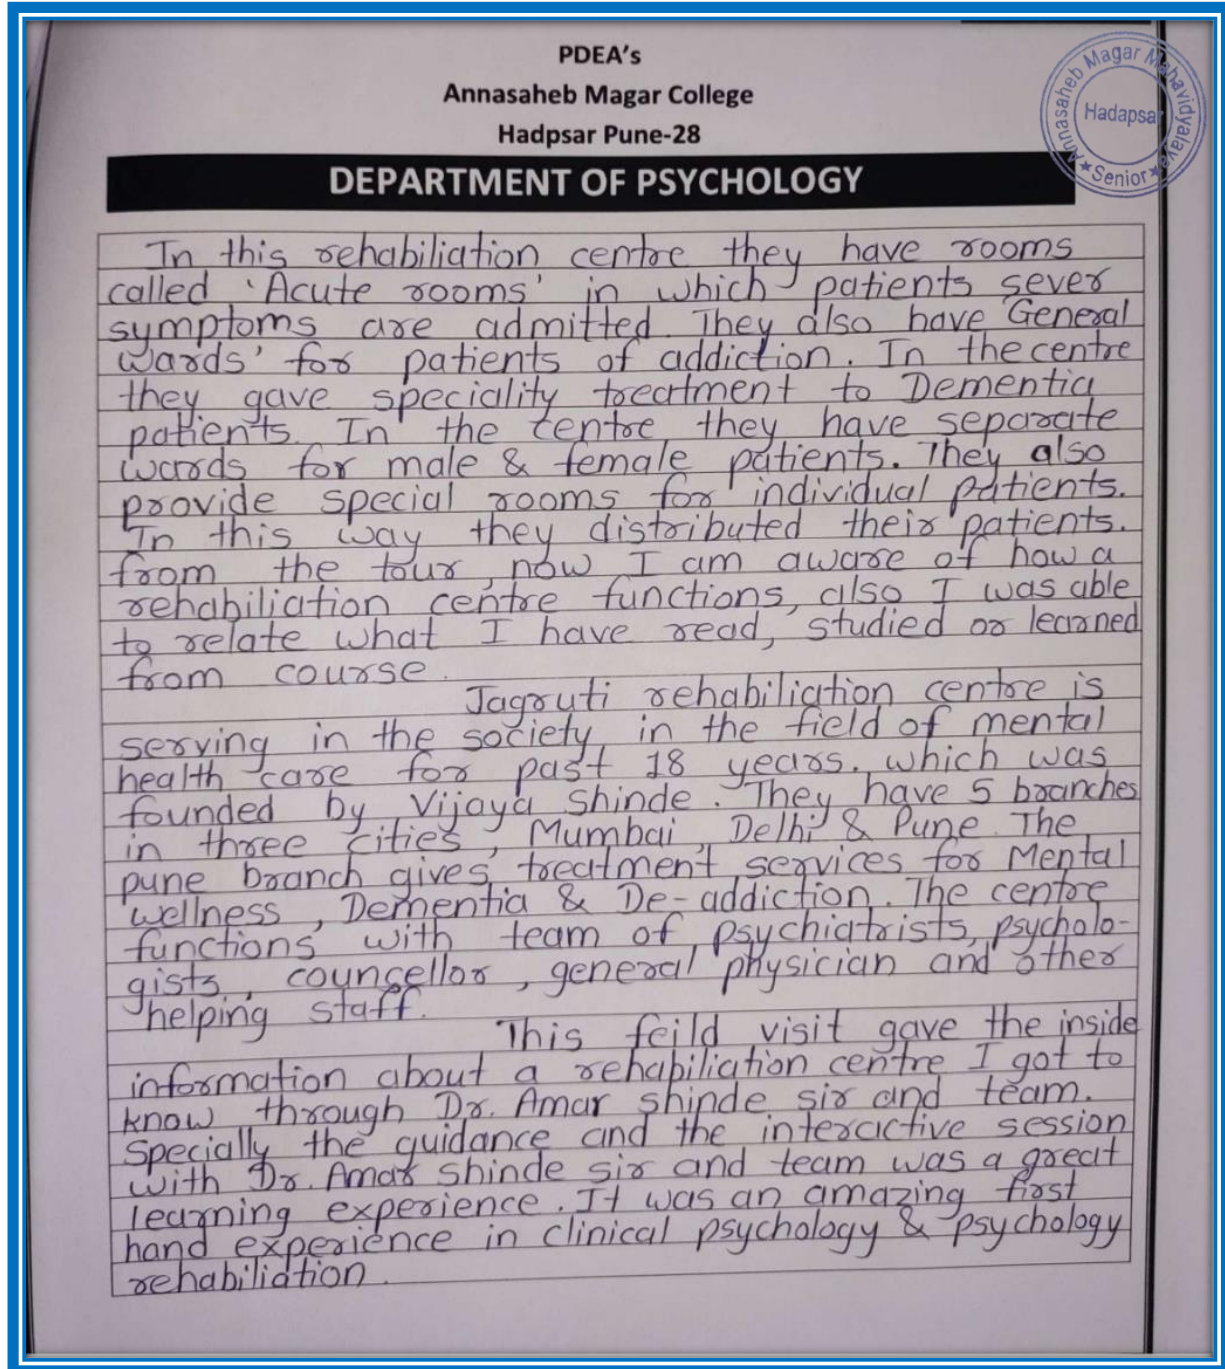 PDEA's
Annasaheb Magar College
Hadpsar Pune-28
DEPARTMENT OF PSYCHOLOGY
Annasaheb Magar Mahavidyalaya
Hadapsar
★ Senior ★
In this rehabiliation centre they have rooms
called 'Acute rooms' in which patients sever
symptoms are admitted. They also have General
wards' for patients of addiction. In the centre
they gave speciality treatment to Dementia
patients. In the centre, they have separate
wards for male & female patients. They also
provide special rooms for individual patients.
In this way they distributed their patients.
from the tour, now I am aware of how a
rehabiliation centre functions, also I was able
to relate what I have read, studied or learned
from course.
Jagruti rehabiliation centre is
serving in the society, in the field of mental
health care for past 18 years. which was
founded by Vijaya Shinde. They have 5 branches
in three cities, Mumbai, Delhi & Pune. The
pune branch gives treatment services for Mental
wellness, Dementia & De-addiction. The centre
functions with team of psychiatrists, psycholo-
gists, councellor, general physician and other
helping staff.
This feild visit gave the inside
information about a rehabiliation centre I got to
know through Dr. Amar Shinde sir and team.
Specially the guidance and the interactive session
with Dr. Amar Shinde sir and team was a great
learning experience. It was an amazing first
hand experience in clinical psychology & psychology
rehabiliation.